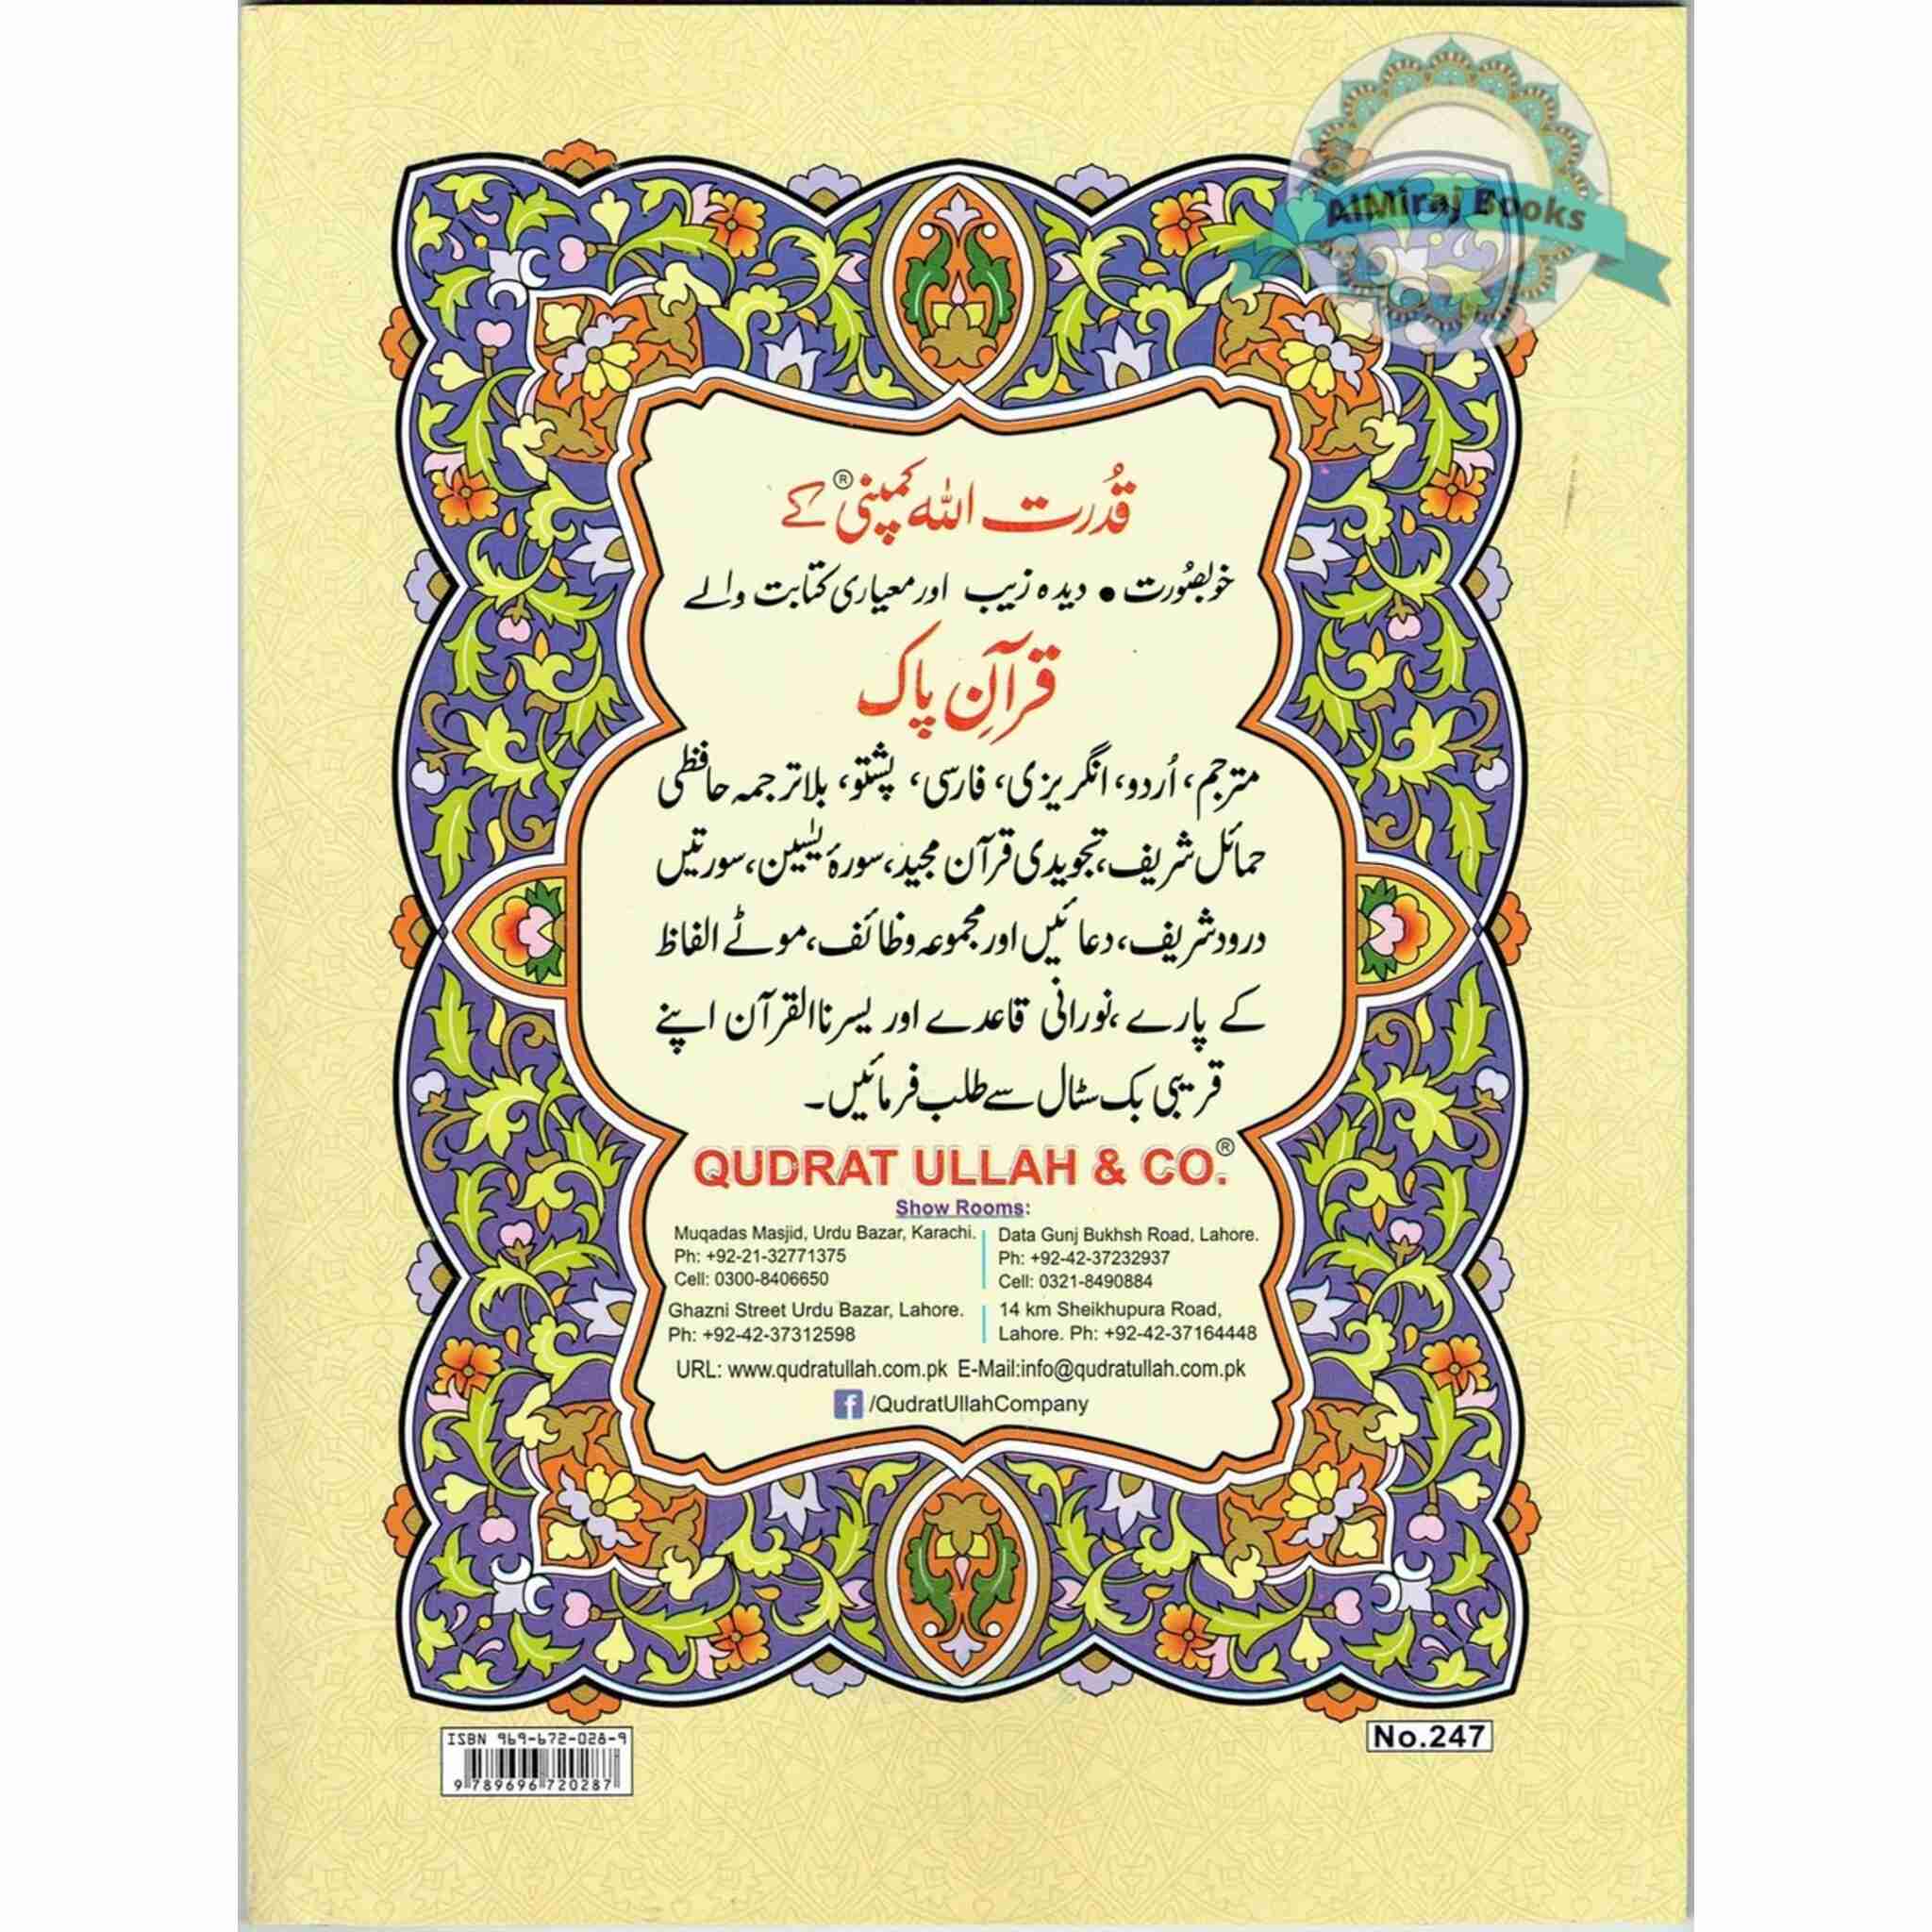 AlMiraj Books
قُدرت اللہ کمپنی® کے
خوبصُورت • دیدہ زیب اور معیاری کتابت والے
قرآنِ پاک
مترجم، اُردو، انگریزی، فارسی، پشتو، بلاترجمہ حافظی
حمائل شریف، تجویدی قرآن مجید، سورۂ یٰسین، سورتیں
درود شریف، دعائیں اور مجموعہ وظائف، موٹے الفاظ
کے پارے، نورانی قاعدے اور یسرنا القرآن اپنے
قریبی بک سٹال سے طلب فرمائیں۔
QUDRAT ULLAH & CO.®
Show Rooms:
Muqadas Masjid, Urdu Bazar, Karachi.
Ph: +92-21-32771375
Cell: 0300-8406650
Data Gunj Bukhsh Road, Lahore.
Ph: +92-42-37232937
Cell: 0321-8490884
Ghazni Street Urdu Bazar, Lahore.
Ph: +92-42-37312598
14 km Sheikhupura Road,
Lahore. Ph: +92-42-37164448
URL: www.qudratullah.com.pk E-Mail:info@qudratullah.com.pk
f /QudratUllahCompany
ISBN 969-672-028-9
9 789696 720287
No.247